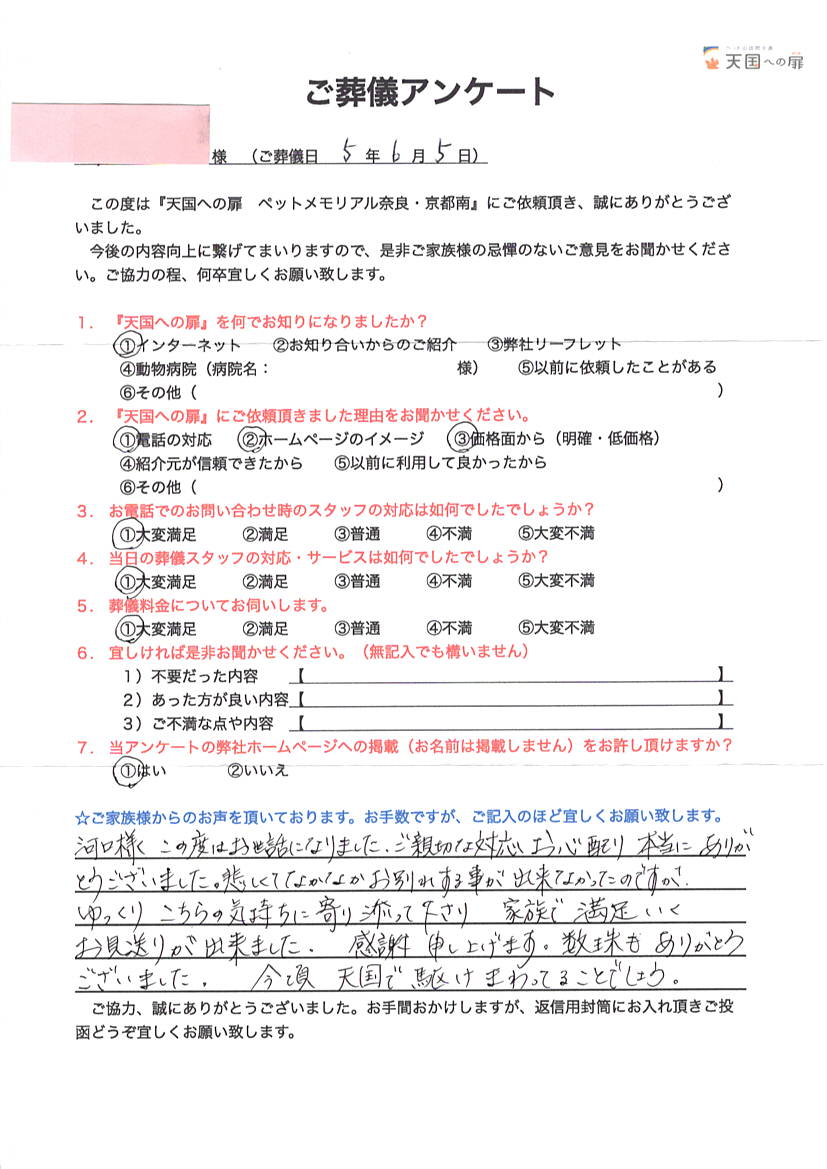 ペットの訪問火葬
天国への扉
ご葬儀アンケート
様 （ご葬儀日 5 年 6 月 5 日）
この度は『天国への扉 ペットメモリアル奈良・京都南』にご依頼頂き、誠にありがとうござ
いました。
今後の内容向上に繋げてまいりますので、是非ご家族様の忌憚のないご意見をお聞かせくださ
い。ご協力の程、何卒宜しくお願い致します。
1． 『天国への扉』を何でお知りになりましたか？
①インターネット ②お知り合いからのご紹介 ③弊社リーフレット
④動物病院（病院名： 様） ⑤以前に依頼したことがある
⑥その他（ ）
2． 『天国への扉』にご依頼頂きました理由をお聞かせください。
①電話の対応 ②ホームページのイメージ ③価格面から（明確・低価格）
④紹介元が信頼できたから ⑤以前に利用して良かったから
⑥その他（ ）
3． お電話でのお問い合わせ時のスタッフの対応は如何でしたでしょうか？
①大変満足 ②満足 ③普通 ④不満 ⑤大変不満
4． 当日の葬儀スタッフの対応・サービスは如何でしたでしょうか？
①大変満足 ②満足 ③普通 ④不満 ⑤大変不満
5． 葬儀料金についてお伺いします。
①大変満足 ②満足 ③普通 ④不満 ⑤大変不満
6． 宜しければ是非お聞かせください。（無記入でも構いません）
1）不要だった内容 【 】
2）あった方が良い内容【 】
3）ご不満な点や内容 【 】
7． 当アンケートの弊社ホームページへの掲載（お名前は掲載しません）をお許し頂けますか？
①はい ②いいえ
☆ご家族様からのお声を頂いております。お手数ですが、ご記入のほど宜しくお願い致します。
河口様 この度はお世話になりました。ご親切な対応、お心配り 本当に ありが
とうございました。悲しくてなかなかお別れする事が出来なかったのですが、
ゆっくり こちらの気持ちに寄り添って下さり 家族で 満足いく
お見送りが出来ました。 感謝 申し上げます。数珠も ありがとう
ございました。 今頃 天国で駆けまわってることでしょう。
ご協力、誠にありがとうございました。お手間おかけしますが、返信用封筒にお入れ頂きご投
函どうぞ宜しくお願い致します。